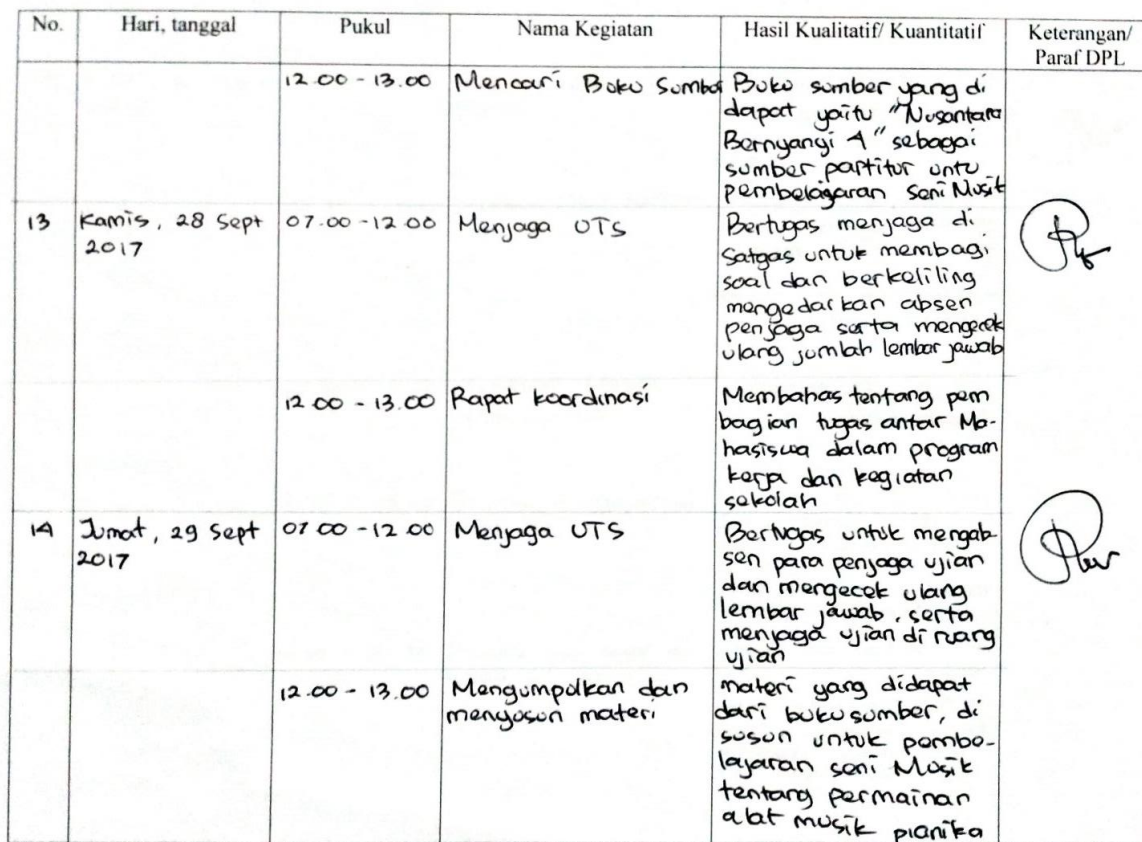 No. Hari, tanggal Pukul Nama Kegiatan Hasil Kualitatif/ Kuantitatif Keterangan/
Paraf DPL
12.00 - 13.00 Mencari Buku Sumber Buku sumber yang di
dapat yaitu "Nusantara
Bernyanyi 4" sebagai
sumber partitur untu
pembelajaran Seni Musik
13 Kamis, 28 Sept 07.00 - 12.00 Menjaga UTS Bertugas menjaga di
2017 Satgas untuk membagi
soal dan berkeliling
mengedarkan absen
penjaga serta mengecek
ulang jumlah lembar jawab
12.00 - 13.00 Rapat koordinasi Membahas tentang pem
bagian tugas antar Ma-
hasiswa dalam program
kerja dan kegiatan
sekolah
14 Jumat, 29 Sept 07.00 - 12.00 Menjaga UTS Bertugas untuk mengab-
2017 sen para penjaga ujian
dan mengecek ulang
lembar jawab, serta
menjaga ujian di ruang
ujian
12.00 - 13.00 Mengumpulkan dan materi yang didapat
menyusun materi dari buku sumber, di
susun untuk pembe-
lajaran seni Musik
tentang permainan
alat musik pianika